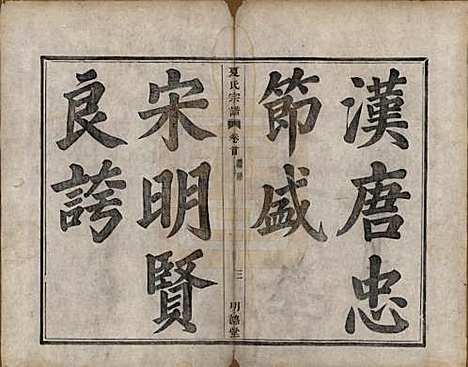 漢唐忠
節盛
夏氏宗譜 卷首 三 明德堂
宋明賢
良誇